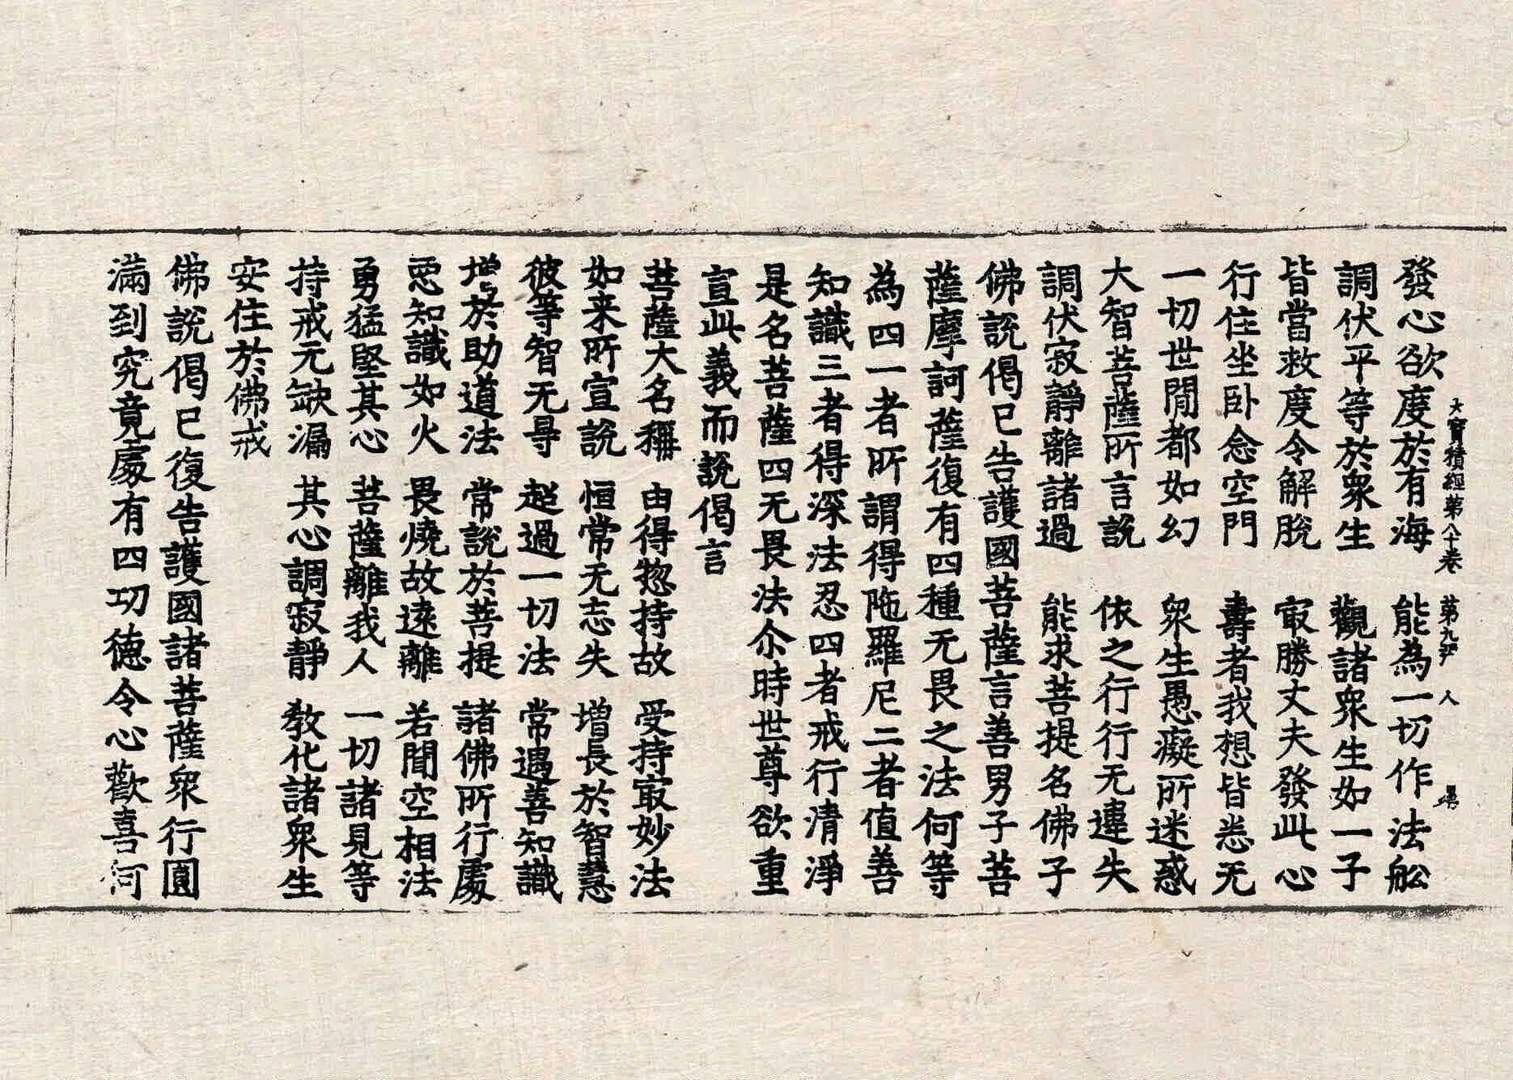 大寶積經第八十卷 第九張 人
發心欲度於有海 能為一切作法舩
調伏平等於衆生 觀諸衆生如一子
皆當救度令解脫 冣勝丈夫發此心
行住坐卧念空門 壽者我想皆悉无
一切世間都如幻 衆生愚癡所迷惑
大智菩薩所言說 依之行行无違失
調伏寂靜離諸過 能求菩提名佛子
佛說偈已告護國菩薩言善男子菩
薩摩訶薩復有四種无畏之法何等
為四一者所謂得陁羅尼二者值善
知識三者得深法忍四者戒行清淨
是名菩薩四无畏法尒時世尊欲重
宣此義而說偈言
菩薩大名稱 由得惣持故 受持冣妙法
如来所宣說 恒常无志失 增長於智慧
彼等智无㝵 超過一切法 常遇善知識
增於助道法 常說於菩提 諸佛所行處
惡知識如火 畏燒故遠離 若聞空相法
勇猛堅其心 菩薩離我人 一切諸見等
持戒无缺漏 其心調寂靜 教化諸衆生
安住於佛戒
佛說偈已復告護國諸菩薩衆行圓
滿到究竟處有四功德令心歡喜何